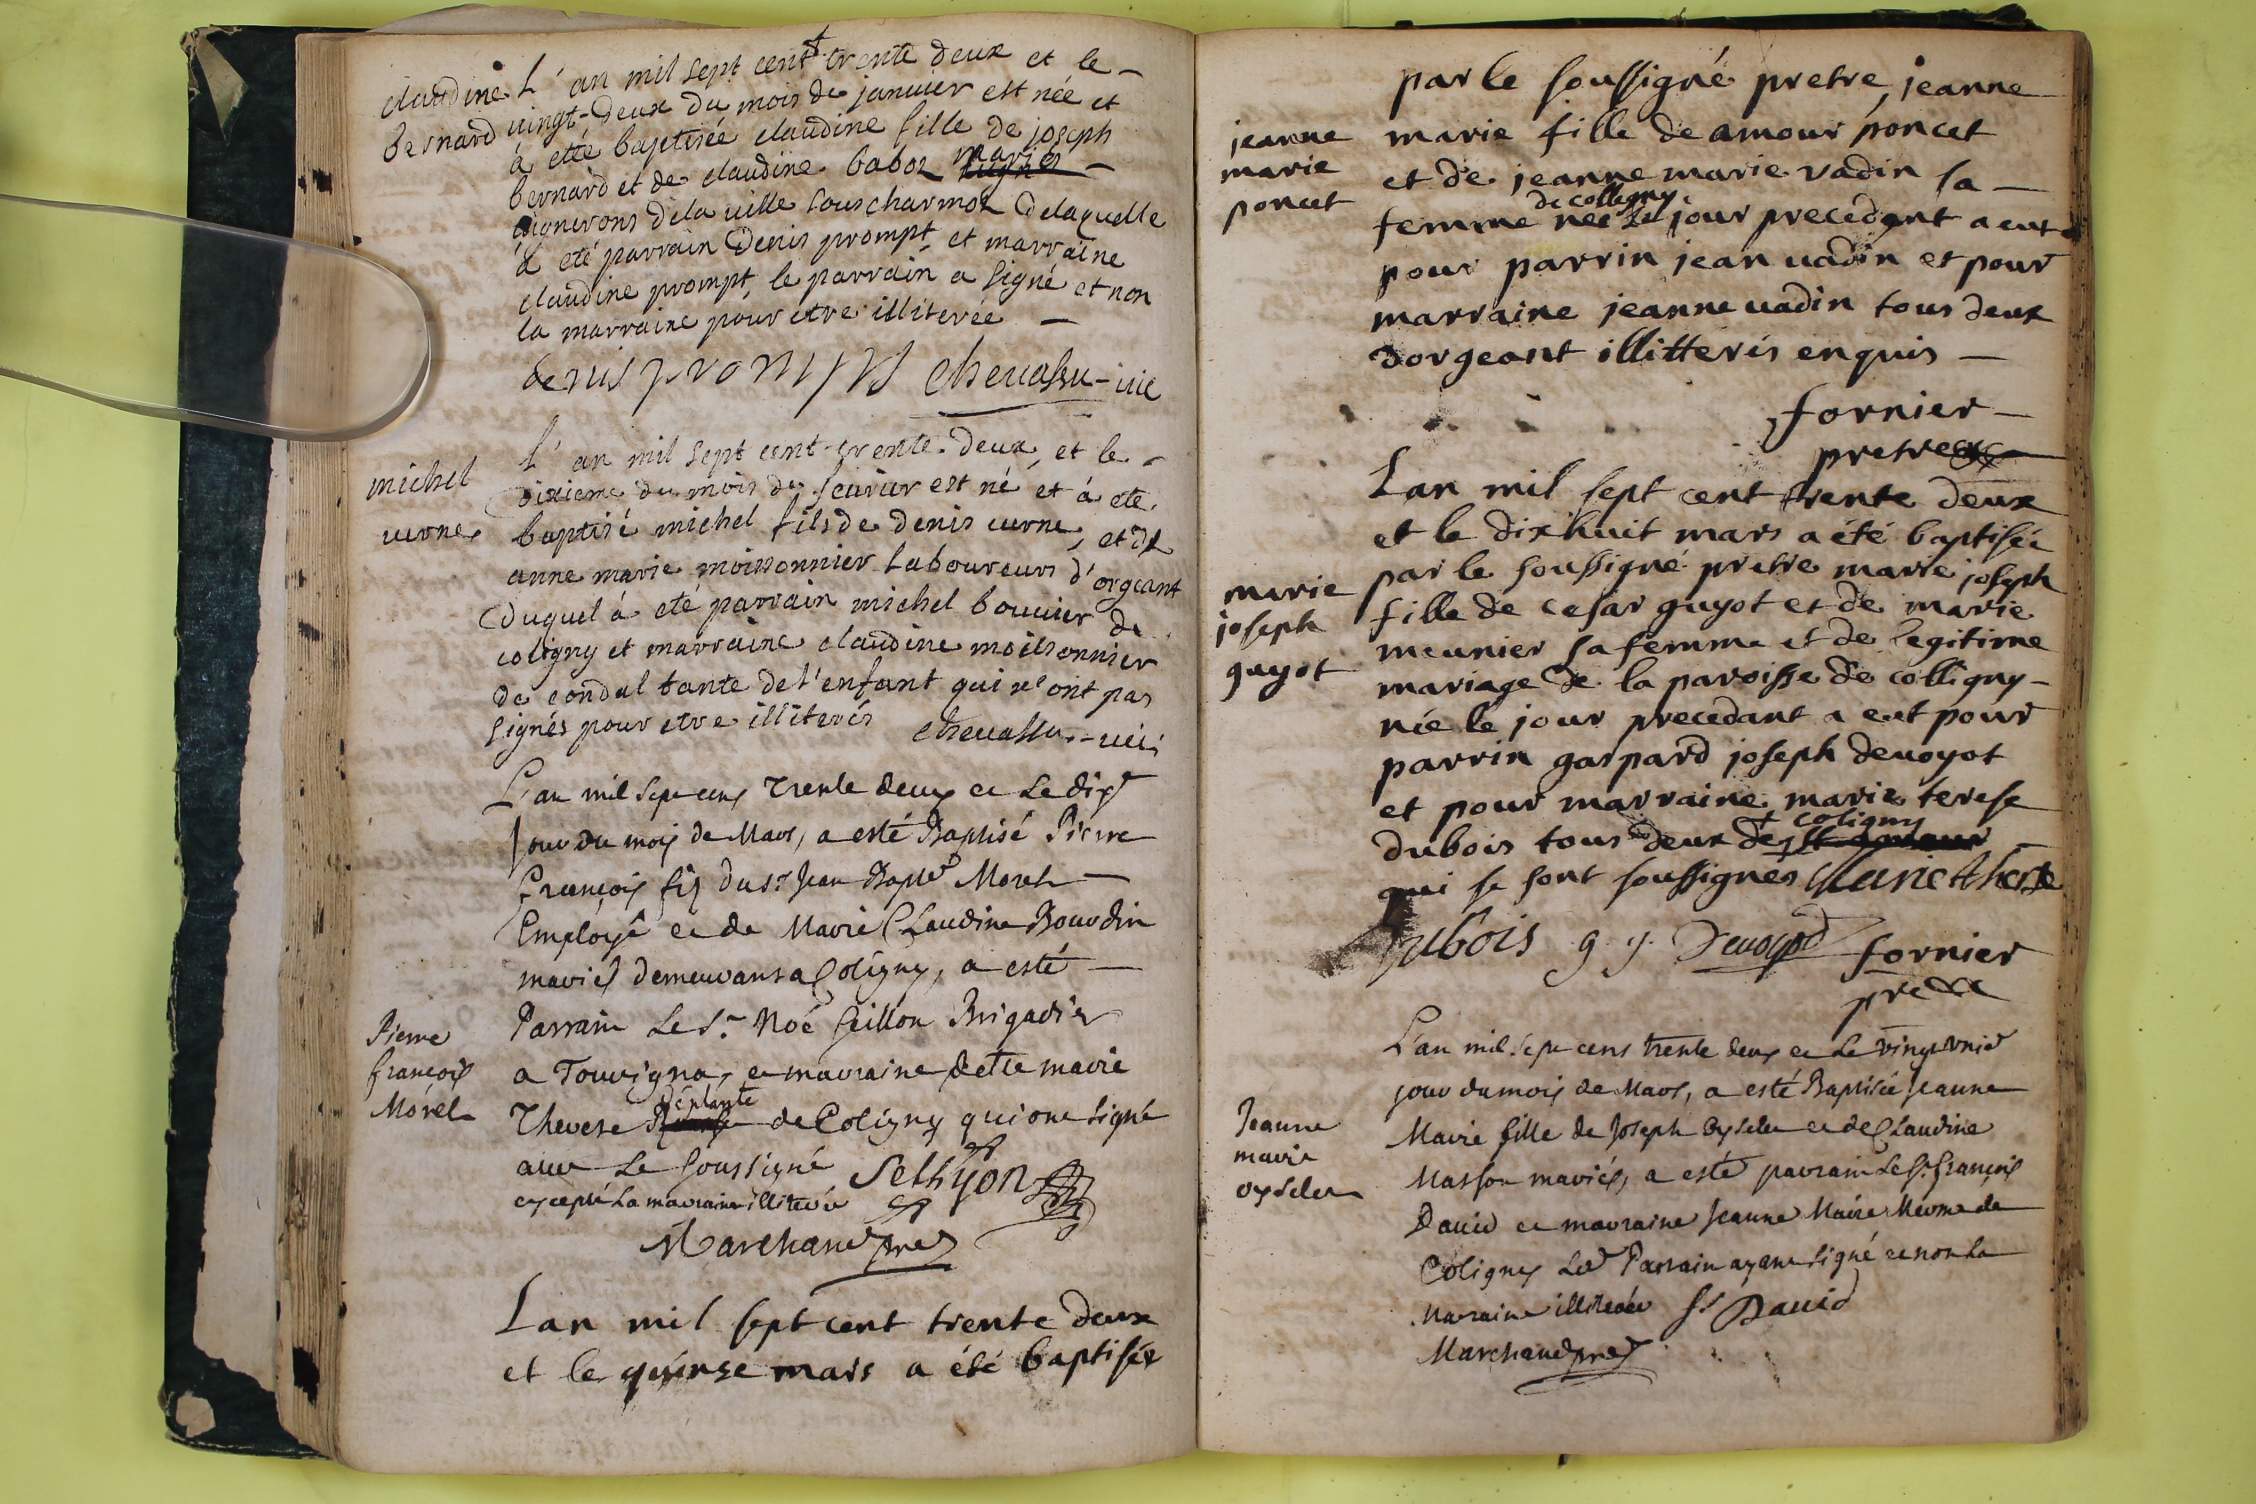 claudine
bernard
L'an mil sept cent trente deux et le
vingt-deux du mois de janvier est née et
à etté baptisée claudine fille de joseph
bernard et de claudine baboz mariés
vignerons dela ville souscharmoz delaquelle
à eté parrain Denis prompt et marraine
claudine prompt, le parrain a signé et non
la marraine pour etre illiterée
denis prompt chevassu-vic
michel
verne
L'an mil sept cent-trente-deux, et le
dixieme du mois de fevrier est né et à eté
baptisé michel fils de denis verne, et de
anne marie moissonnier laboureurs d'orgeant
Duquel à eté parrain michel bouvier de
coligny et marraine claudine moissonnier
de condal tante de l'enfant qui n'ont pas
signés pour etre illiterés chevassu-vic
Pierre
françois
Morel
L'an mil sept cens Trente deux et Le dixe
Jour du mois de Mars, a esté Baptisé Pierre
françois fils du Sr Jean Bapte Morel
Employé et de Marie Claudine Bourdin
mariés demeurans a Coligny, a esté
Parrain Le Sr Noé Brigadier
a Touvignas, et marraine dette marie
Therese Déplante de Coligny qui ont signé
avec Le Soussigné
excepté La marraine illiterée
Marchand pre
Lan mil sept cent trente deux
et le quinse mars a été baptisée
par le soussigné pretre, jeanne
jeanne
marie
poncet
marie fille de amour poncet
et de jeanne marie vadin sa
de colligny
femme née le jour precedant a eut
pour parrin jean vadin et pour
marraine jeanne vadin tous deux
dorgeant illitterés enquis
fornier
pretre
Lan mil sept cent trente deux
et le dixhuit mars a été baptisée
marie
joseph
guyot
par le soussigné pretre marie joseph
fille de cesar guyot et de marie
meunier sa femme et de legitime
mariage de la paroisse de colligny
née le jour precedant a eut pour
parrin gaspard joseph devoyot
et pour marraine marie terese
+ coligny
dubois tous deux de
qui se sont soussignes Marie therese
dubois g. j. Devoyod fornier
pretre
Jeanne
marie
oyselet
L'an mil sept cens trente deux et Le vingt unie
jour du mois de Mars, a esté Baptisée Jeanne
Marie fille de Joseph oyselet et de Claudine
Masson mariés, a esté parrain Le Sr françois
David et marraine Jeanne Marie de
Coligny Led Parrain ayant signé et non La
marraine illiterée fs David
Marchand pre